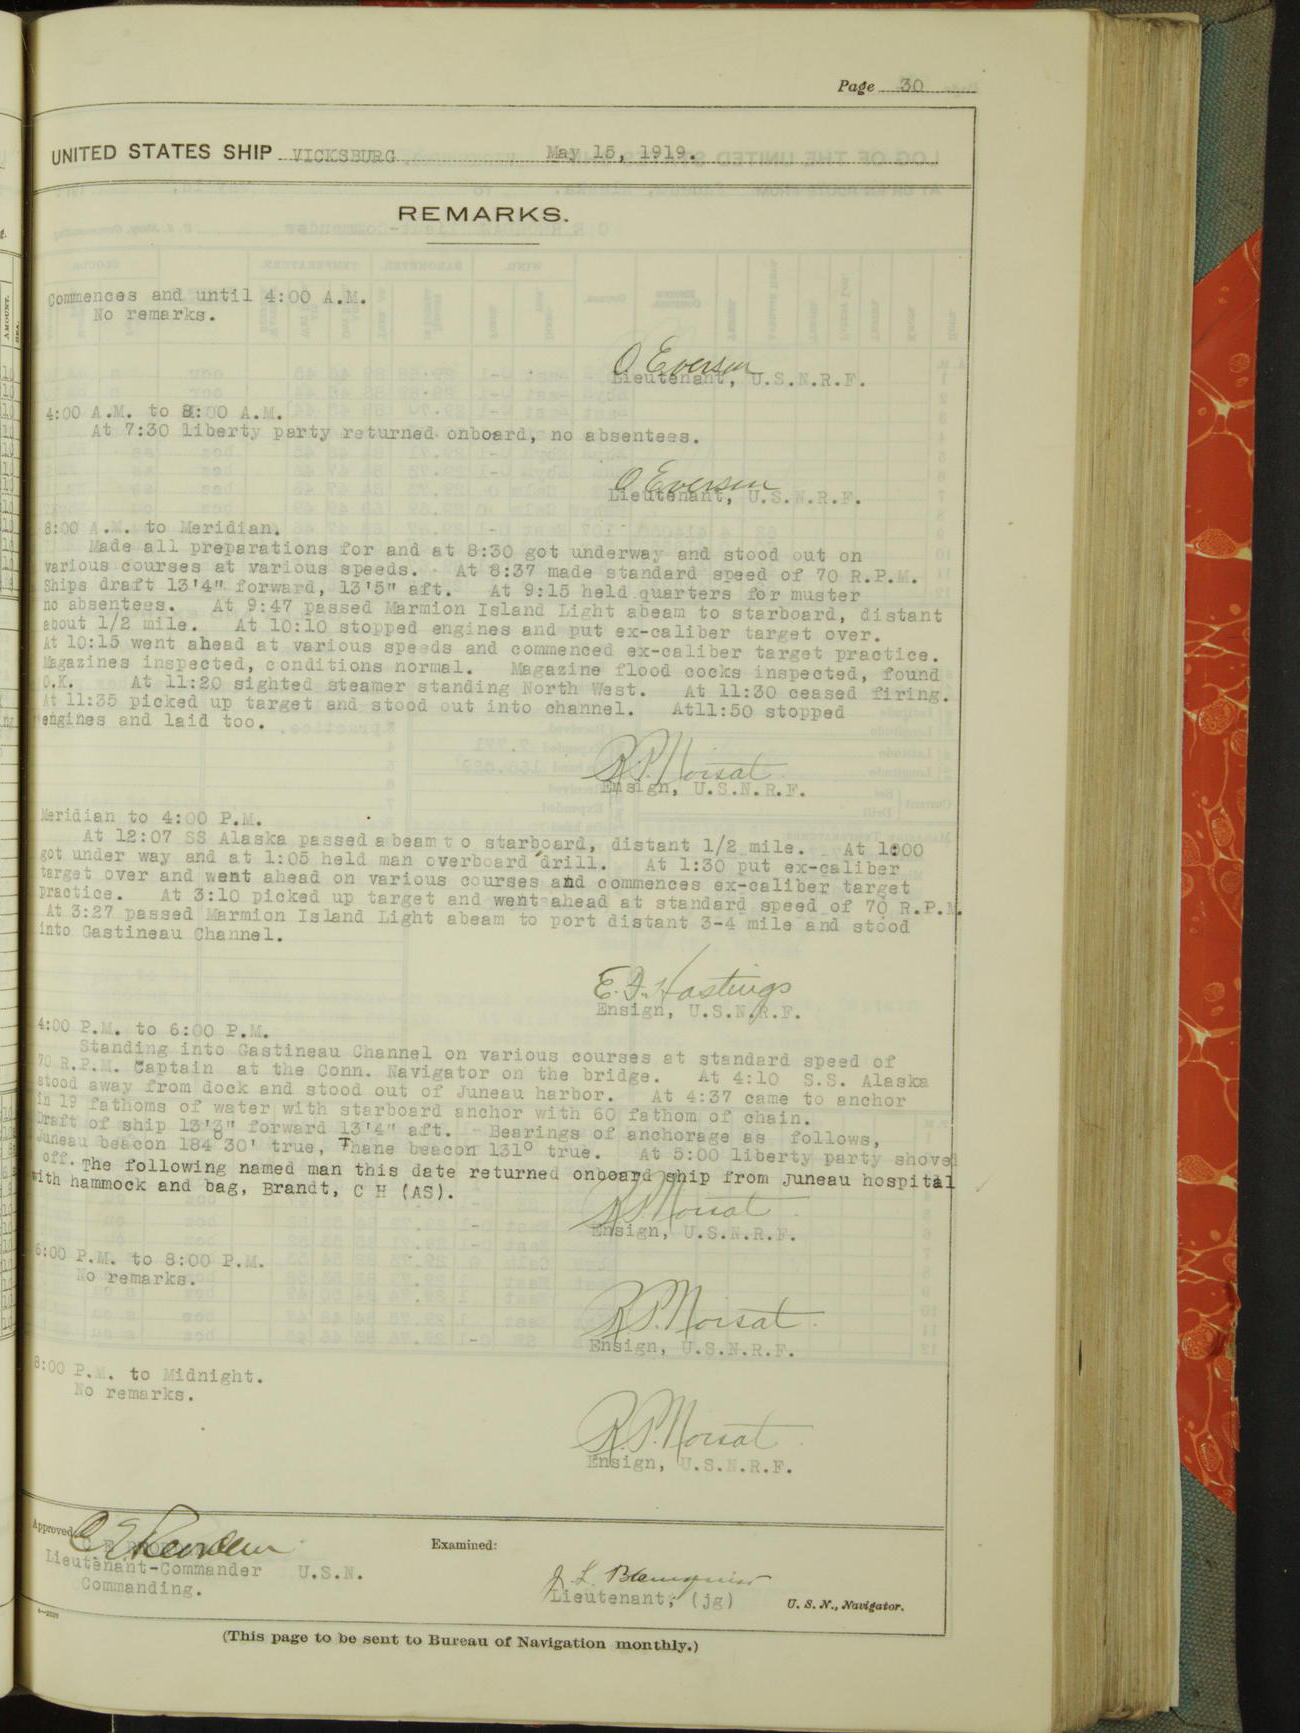 Page 30
UNITED STATES SHIP VICKSBURG May 15, 1919.
REMARKS.
Commences and until 4:00 A.M.
No remarks.
O Everson
Lieutenant, U.S.N.R.F.
4:00 A.M. to 8:00 A.M.
At 7:30 liberty party returned onboard, no absentees.
O Everson
Lieutenant, U.S.N.R.F.
8:00 A.M. to Meridian.
Made all preparations for and at 8:30 got underway and stood out on
various courses at various speeds. At 8:37 made standard speed of 70 R.P.M.
Ships draft 13'4" forward, 13'5" aft. At 9:15 held quarters for muster
no absentees. At 9:47 passed Marmion Island Light abeam to starboard, distant
about 1/2 mile. At 10:10 stopped engines and put ex-caliber target over.
At 10:15 went ahead at various speeds and commenced ex-caliber target practice.
Magazines inspected, conditions normal. Magazine flood cocks inspected, found
O.K. At 11:20 sighted steamer standing North West. At 11:30 ceased firing.
At 11:35 picked up target and stood out into channel. At11:50 stopped
engines and laid too.
R.P. Moisat
Ensign, U.S.N.R.F.
Meridian to 4:00 P.M.
At 12:07 SS Alaska passed abeam to starboard, distant 1/2 mile. At 1:00
got under way and at 1:05 held man overboard drill. At 1:30 put ex-caliber
target over and went ahead on various courses and commences ex-caliber target
practice. At 3:10 picked up target and went ahead at standard speed of 70 R.P.M.
At 3:27 passed Marmion Island Light abeam to port distant 3-4 mile and stood
into Gastineau Channel.
E. F. Hastings
Ensign, U.S.N.R.F.
4:00 P.M. to 6:00 P.M.
Standing into Gastineau Channel on various courses at standard speed of
70 R.P.M. Captain at the Conn. Navigator on the bridge. At 4:10 S.S. Alaska
stood away from dock and stood out of Juneau harbor. At 4:37 came to anchor
in 19 fathoms of water with starboard anchor with 60 fathom of chain.
Draft of ship 13'3" forward 13'4" aft. Bearings of anchorage as follows,
Juneau beacon 184°30' true, Thane beacon 131° true. At 5:00 liberty party shoved
off. The following named man this date returned onboard ship from Juneau hospital
with hammock and bag, Brandt, C H (AS).
R.P. Moisat
Ensign, U.S.N.R.F.
6:00 P.M. to 8:00 P.M.
No remarks.
R.P. Moisat
Ensign, U.S.N.R.F.
8:00 P.M. to Midnight.
No remarks.
R.P. Moisat
Ensign, U.S.N.R.F.
Approved
Examined:
Lieutenant-Commander U.S.N.
Commanding.
J. L.
Lieutenant, (jg) U. S. N., Navigator.
(This page to be sent to Bureau of Navigation monthly.)